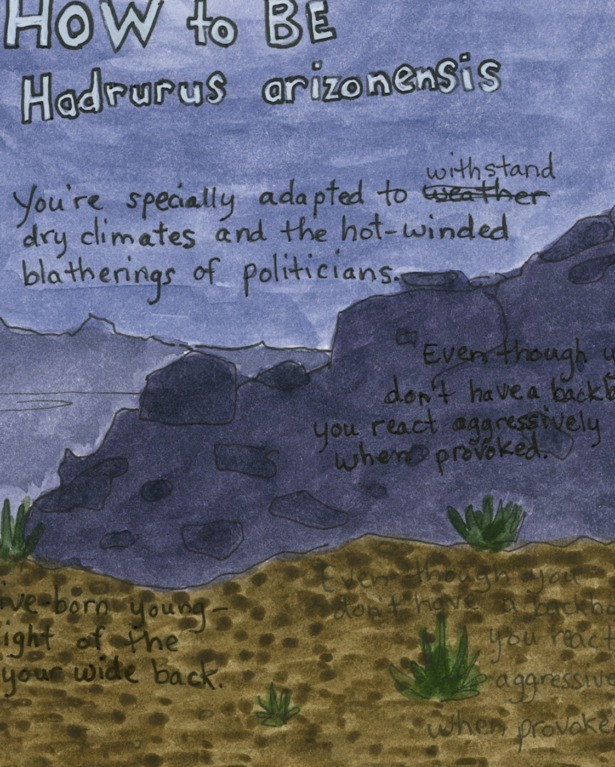 HOW to BE
Hadrurus arizonensis
withstand
You're specially adapted to weather
dry climates and the hot-winded
blatherings of politicians.
Even though
don't have a backb
you react aggressively
when provoked.
ive-born young-
ight of the
your wide back.
Even though you
don't have a backb
you react
aggressive
when provoke